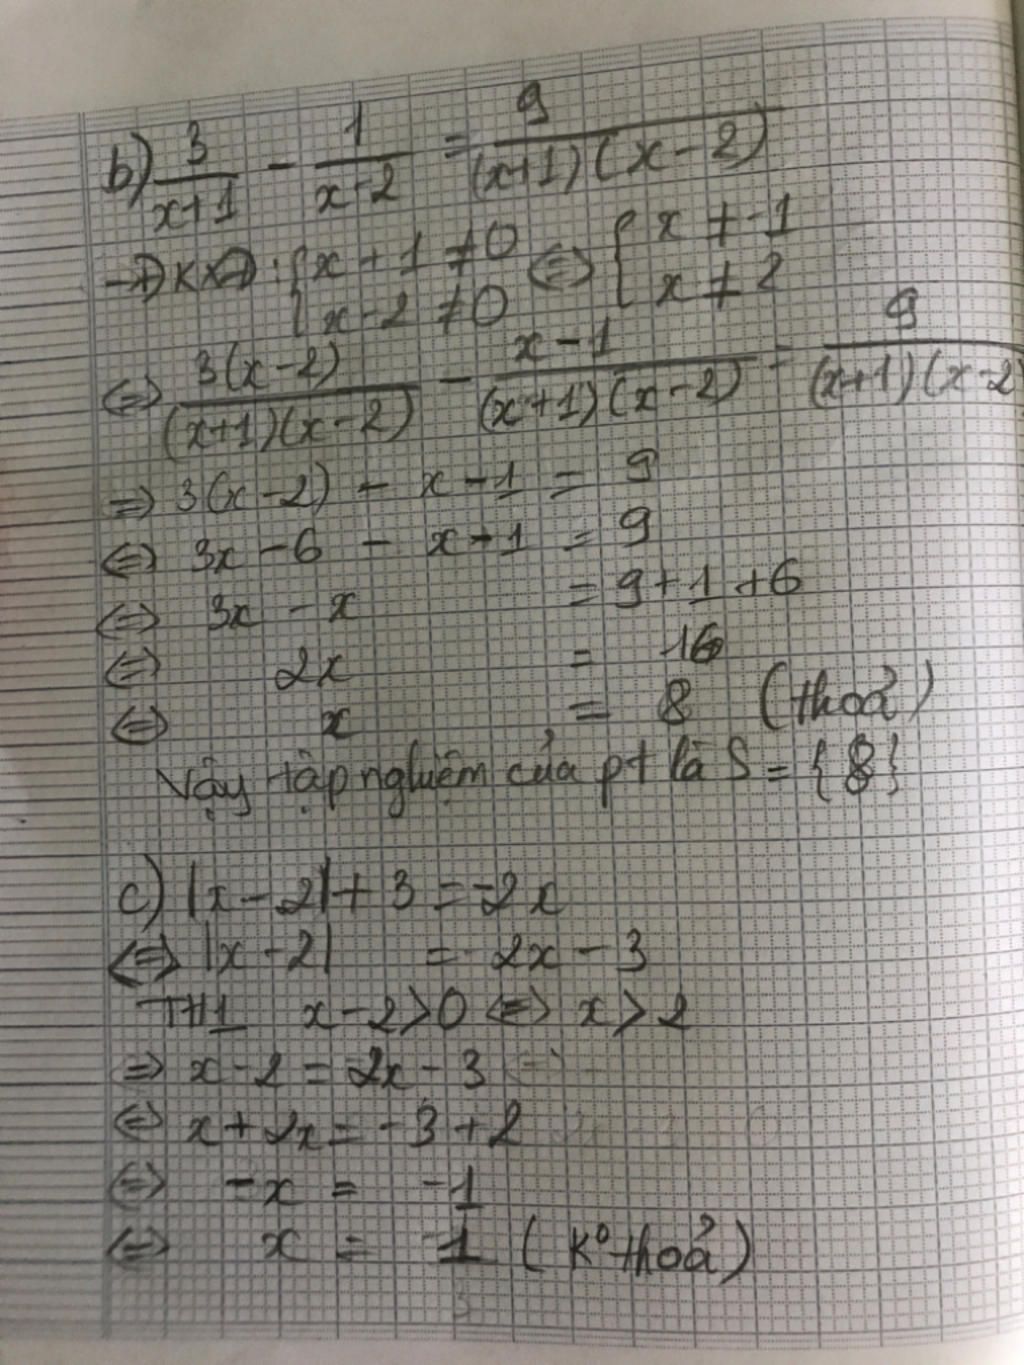 b) 3/(x+1) - 1/(x-2) = 9/((x+1)(x-2))
→ĐKXĐ: { x+1 ≠ 0 <=> { x ≠ -1
{ x-2 ≠ 0 { x ≠ 2
<=> 3(x-2)/((x+1)(x-2)) - x-1/((x+1)(x-2)) = 9/((x+1)(x-2)
=> 3(x-2) - x-1 = 9
<=> 3x-6 - x-1 = 9
<=> 3x - x = 9+1+6
<=> 2x = 16
<=> x = 8 (thoả)
Vậy tập nghiệm của pt là S = {8}
c) |x-2|+3 = -2x
<=> |x-2| = -2x-3
TH1 x-2>0 <=> x>2
=> x-2 = 2x-3
<=> x+2x = -3+2
<=> -x = -1
<=> x = 1 (K° thoả)